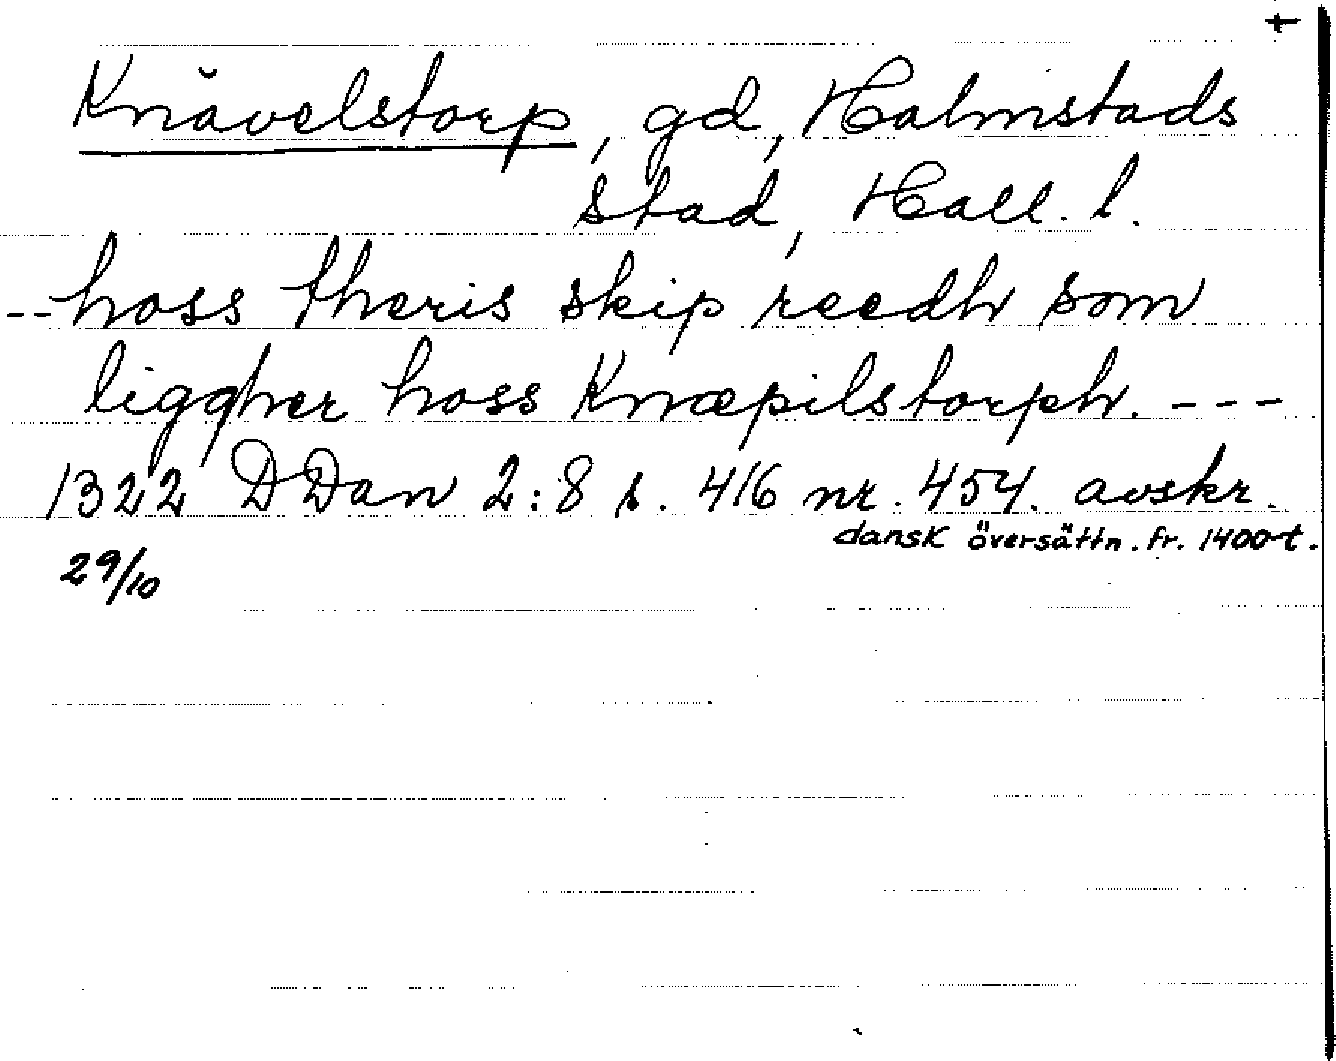 +
Knävelstorp, gd, Halmstads
stad, Hall. l.
-- hoss theris skip reedh som
liggher hoss Knæpilstorph. ---
1322 DDan 2:8 s. 416 nr. 454. avskr.
dansk översättn. fr. 1400-t.
29/10